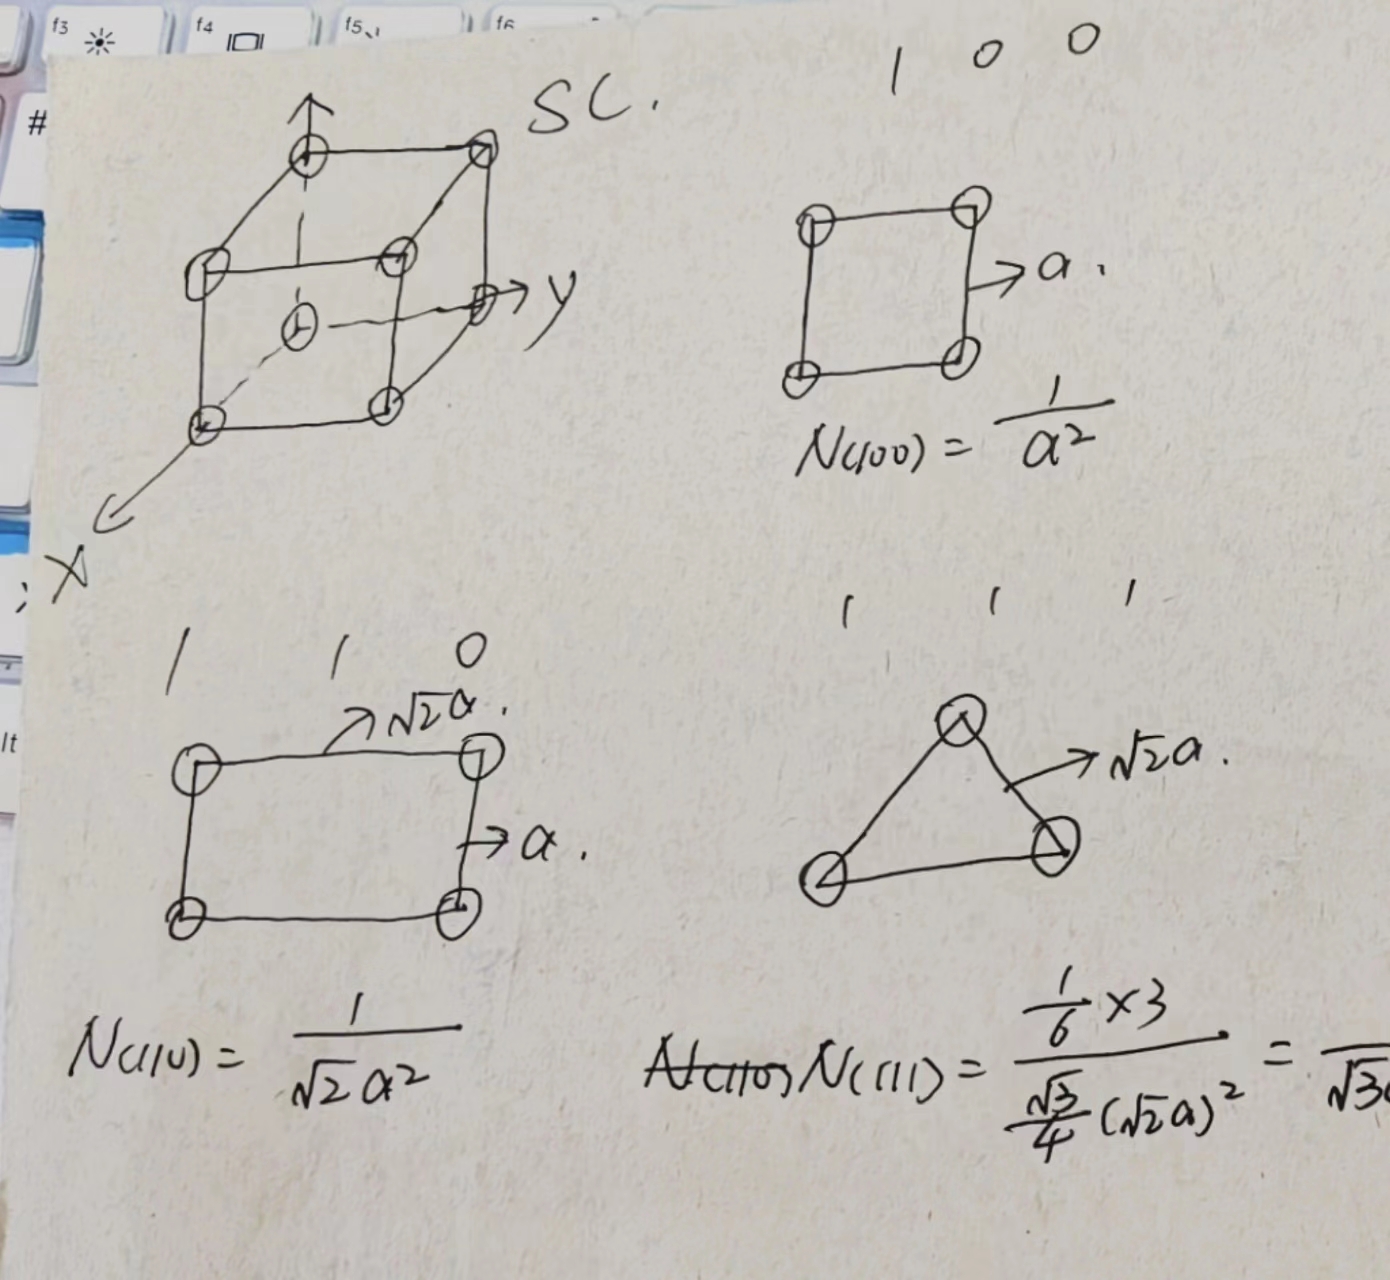 f3 f4 f5 f6
#
SC.
1 0 0
y
a.
N(100) = 1/a²
x
1 1 0
√2a.
a.
N(110) = 1/(√2a²)
1 1 1
√2a.
N(110) N(111) = (1/6 × 3)/(√3/4 (√2a)²) = /√3
lt